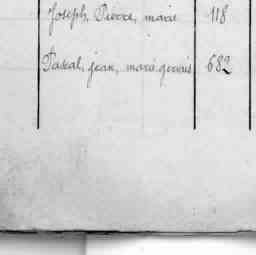 Joseph, Pierre, marie 118
Pascal, jean, marie gervais 682